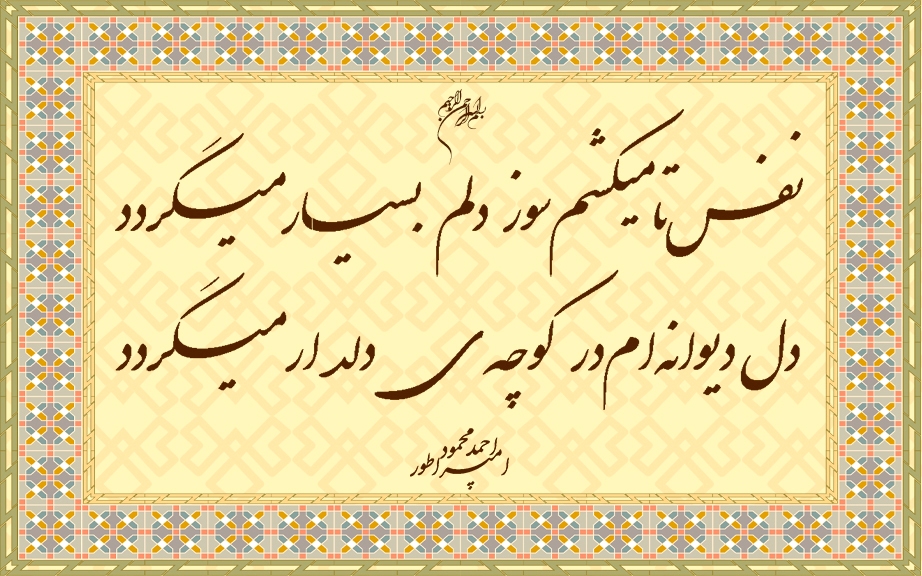 بسم الله الرحمن الرحیم
نفس تا میکشم سوز دلم بسیار میگردد
دل دیوانه ام در کوچه ی دلدار میگردد
احمد محمود
امپراطور